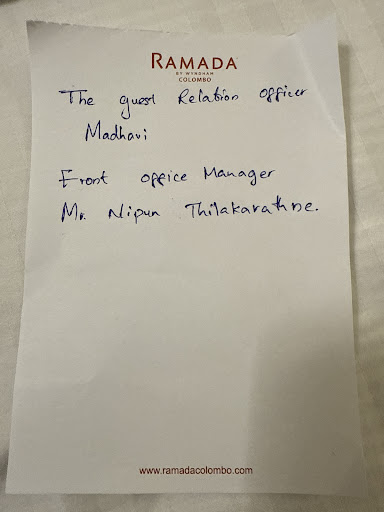 RAMADA
BY WYNDHAM
COLOMBO
The guest Relation officer
Madhavi
Front office Manager
Mr. Nipun Thilakarathne.
www.ramadacolombo.com